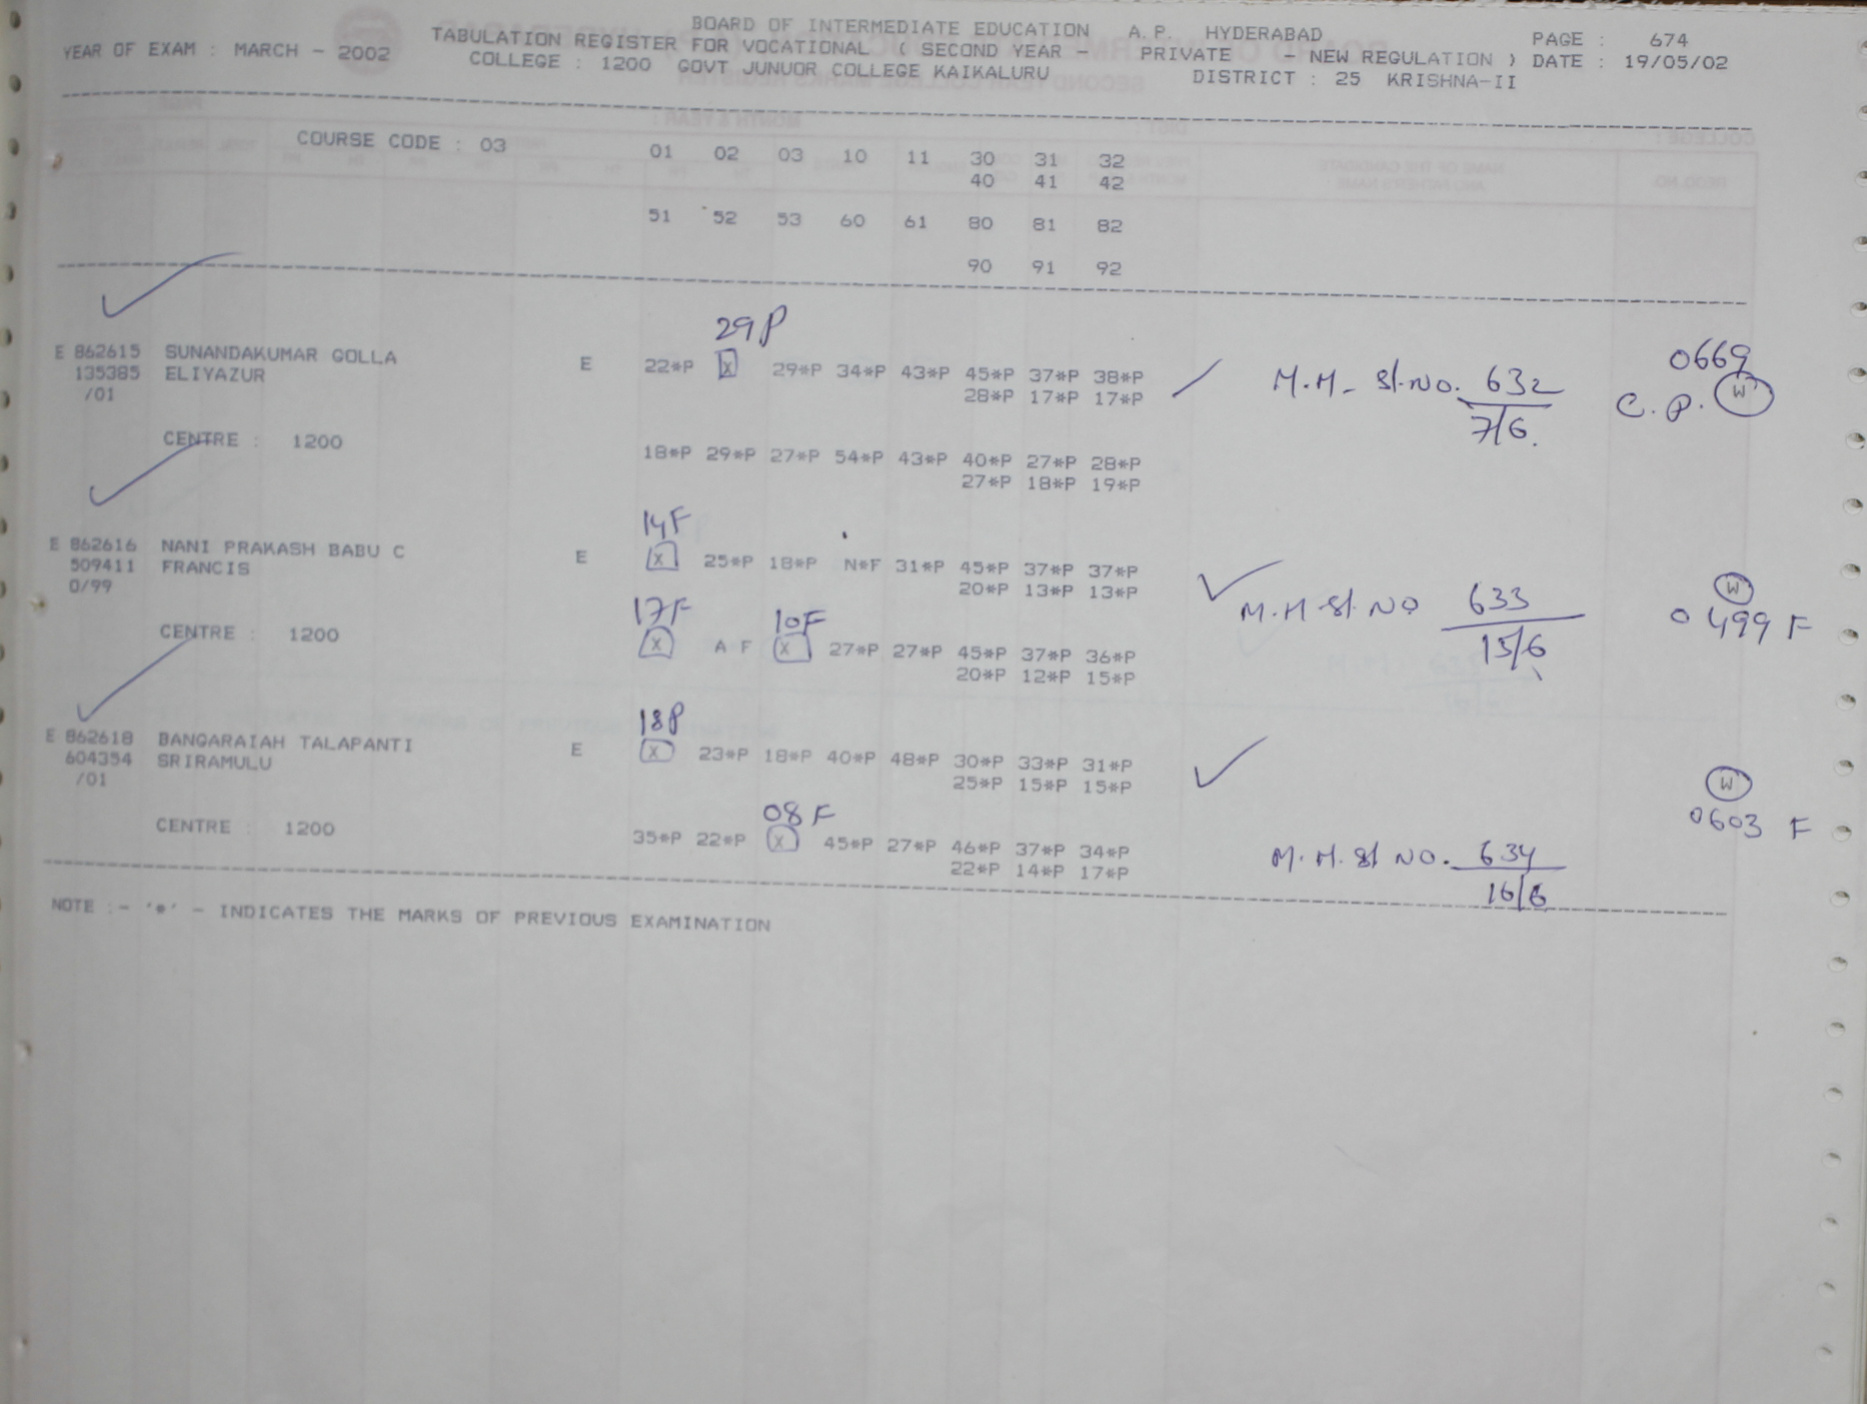 BOARD OF INTERMEDIATE EDUCATION A.P. HYDERABAD
YEAR OF EXAM : MARCH - 2002 TABULATION REGISTER FOR VOCATIONAL ( SECOND YEAR - PRIVATE - NEW REGULATION ) PAGE : 674
COLLEGE : 1200 GOVT JUNUOR COLLEGE KAIKALURU DISTRICT : 25 KRISHNA-II DATE : 19/05/02
COURSE CODE : 03 01 02 03 10 11 30 31 32
40 41 42
51 52 53 60 61 80 81 82
90 91 92
29P
E 862615 SUNANDAKUMAR GOLLA E 22*P X 29*P 34*P 43*P 45*P 37*P 38*P M.M. Sl.No. 632 0669
135385 ELIYAZUR 28*P 17*P 17*P 7/6. C.P. W
/01
CENTRE : 1200 18*P 29*P 27*P 54*P 43*P 40*P 27*P 28*P
27*P 18*P 19*P
14F
E 862616 NANI PRAKASH BABU C E X 25*P 18*P N*F 31*P 45*P 37*P 37*P
509411 FRANCIS 20*P 13*P 13*P M.M Sl. No 633 W
0/99 15/6 0499 F
17F 10F
CENTRE : 1200 X A F X 27*P 27*P 45*P 37*P 36*P
20*P 12*P 15*P
18P
E 862618 BANGARAIAH TALAPANTI E X 23*P 18*P 40*P 48*P 30*P 33*P 31*P
604354 SRIRAMULU 25*P 15*P 15*P W
/01 0603 F
08F
CENTRE : 1200 35*P 22*P X 45*P 27*P 46*P 37*P 34*P M.M. Sl No. 634
22*P 14*P 17*P 16/6
NOTE :- '*' - INDICATES THE MARKS OF PREVIOUS EXAMINATION